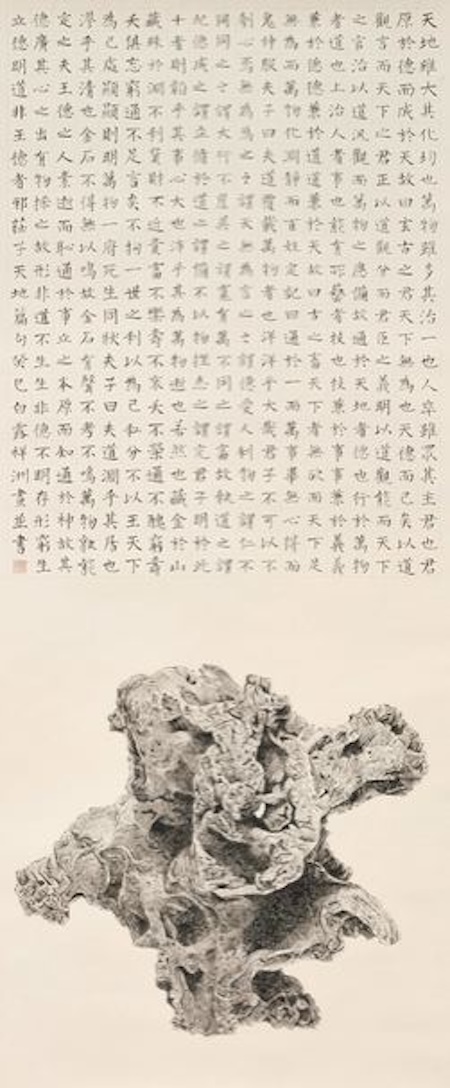 天地雖大其化均也萬物雖多其治一也人卒雖眾其主君也君
原於德而成於天故曰玄古之君天下無為也天德而已矣以道
觀言而天下之君正以道觀分而君臣之義明以道觀能而天下
之官治以道汎觀而萬物之應備故通於天地者德也行於萬物
者道也上治人者事也能有所藝者技也技兼於事事兼於義義
兼於德德兼於道道兼於天故曰古之畜天下者無欲而天下足
無為而萬物化淵靜而百姓定記曰通於一而萬事畢無心得而
鬼神服夫子曰夫道覆載萬物者也洋洋乎大哉君子不可以不
刳心焉無為為之之謂天無為言之之謂德愛人利物之謂仁不
同同之之謂大行不崖異之謂寬有萬不同之謂富故執之謂
紀德成之謂立循於道之謂備不以物挫志之謂完君子明於此
十者則韜乎其事心大也乎其為萬物逝也若然藏金於山
藏珠於淵不利貨財不近貴富不樂壽不哀夭不榮通不醜窮壽
夭俱忘窮通不足言矣不拘一世之利以為己私分不以王天下
為己處顯顯則明萬物一府死生同狀夫子曰夫道淵乎其居也
漻乎其清也金石不得無以鳴故金石有聲不考不鳴萬物孰能
定之夫王德之人素逝而恥通於事立之本原而知通於神故其
德廣其心之出有物採之故形非道不生生非德不明存形窮生
立德明道非王德者邪莊子天地篇句癸巳白露祥洲畫並書